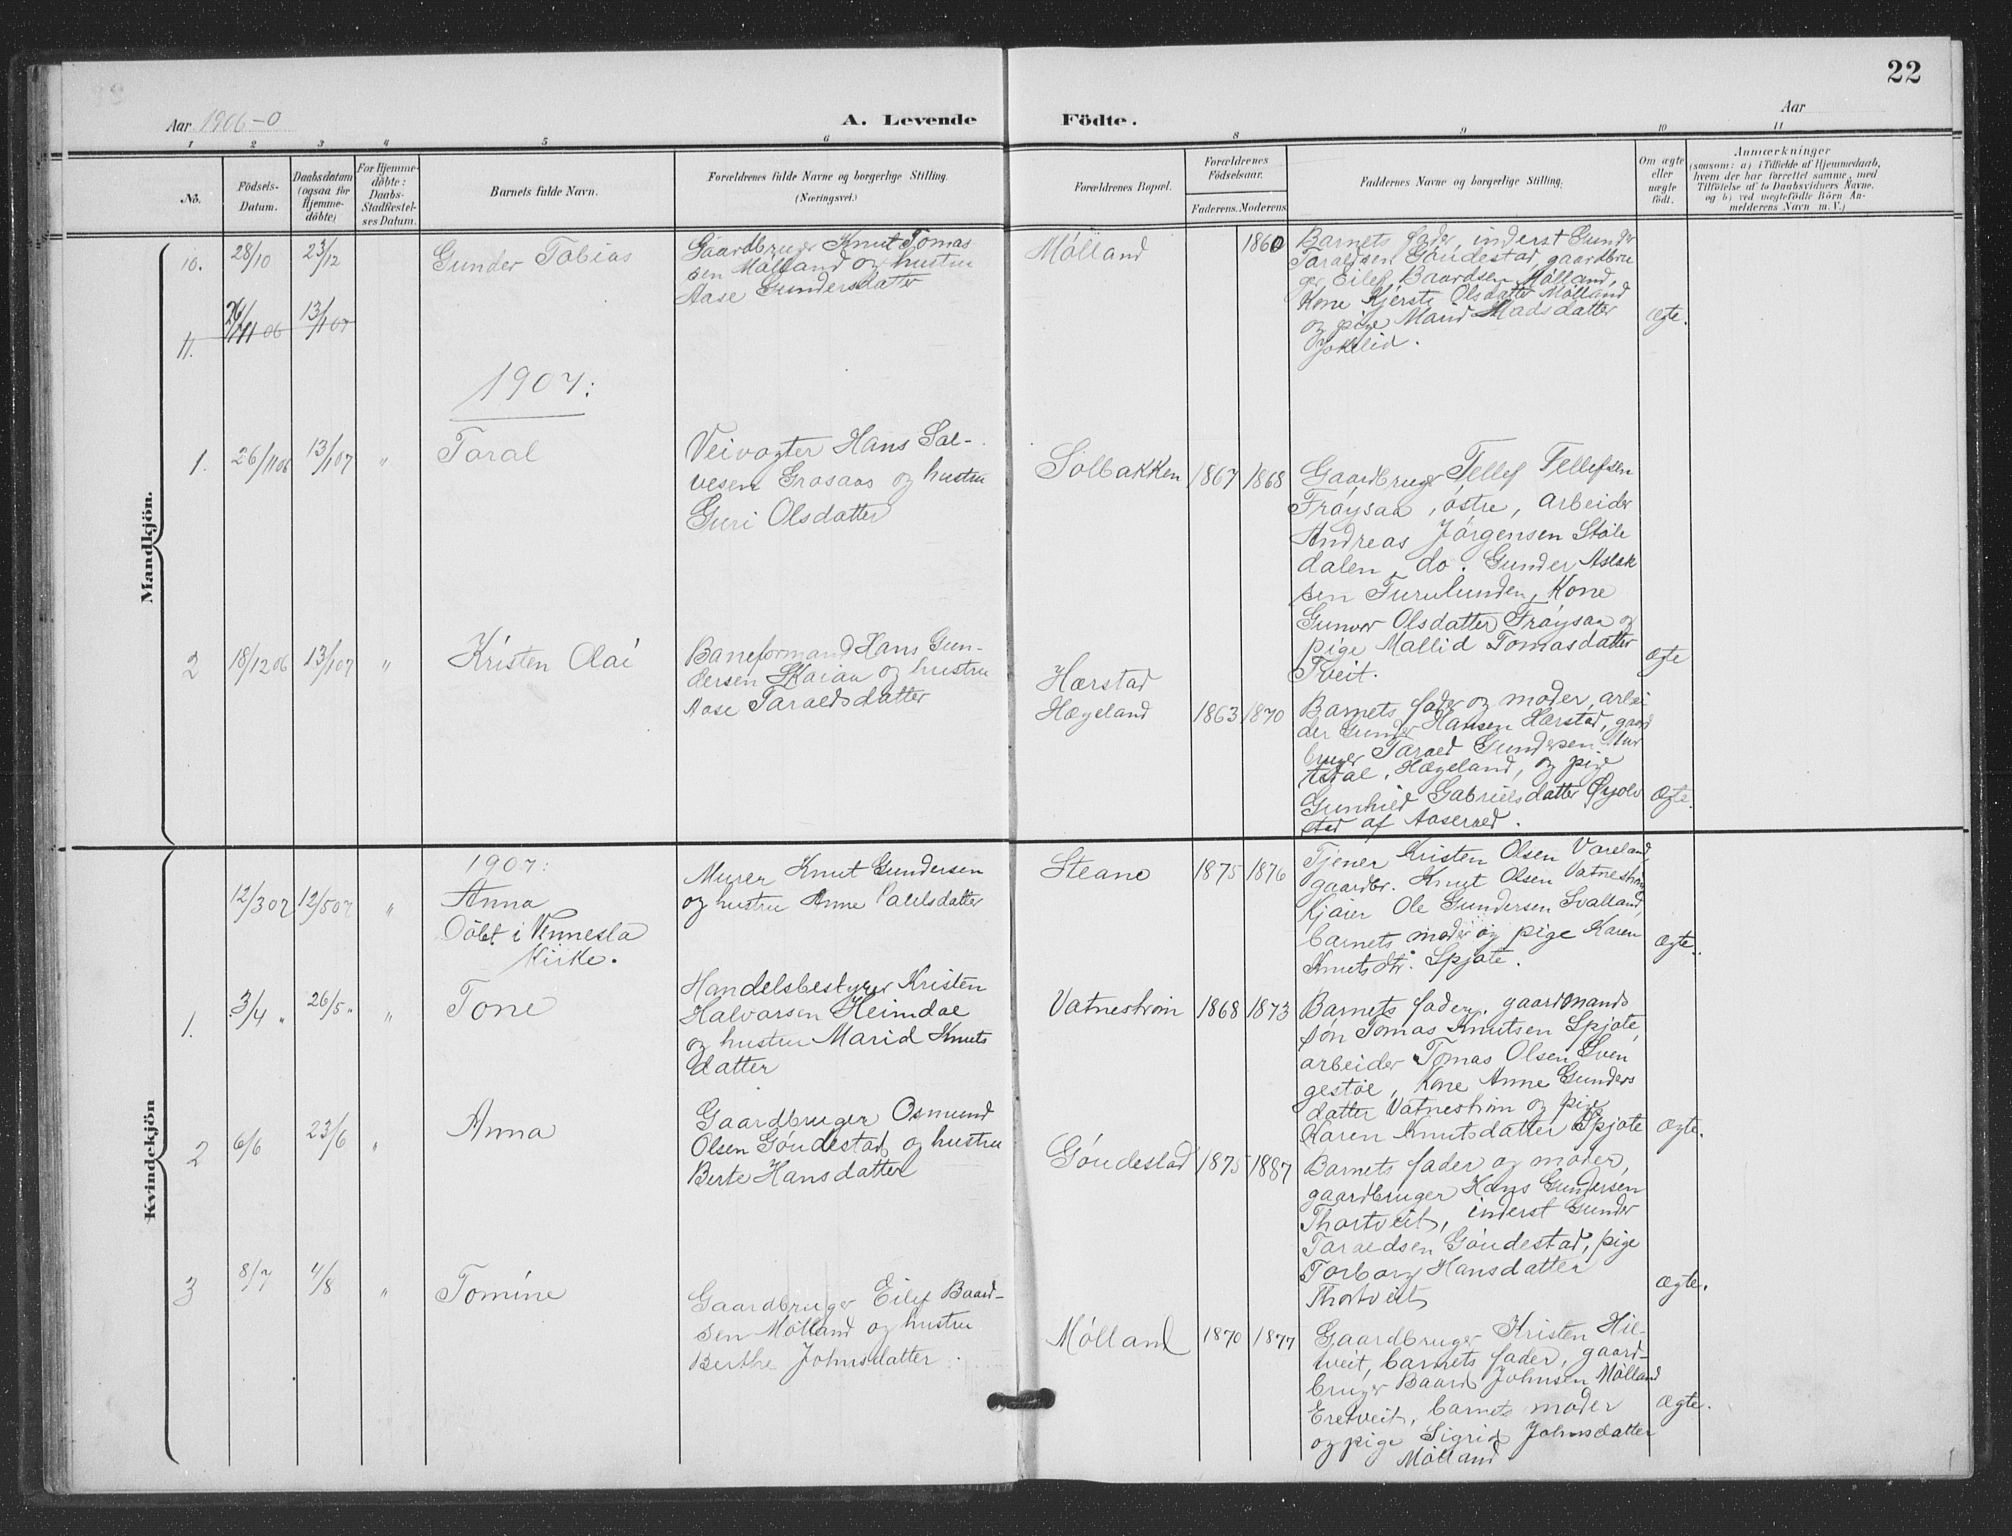 22
Aar 1906-0
A. Levende Födte.
Aar
1 2 3 4 5 6 8 9 10 11
No.
Födsels-
Datum.
Daabsdatum
(ogsaa för
Hjemme-
döbte)
For Hjemme-
döbte:
Daabs-
Stadfæstel-
ses Datum.
Barnets fulde Navn.
Forældrenes fulde Navne og borgerlige Stilling.
(Næringsvei.)
Forældrenes Bopæl.
Forældrenes
Födselsaar.
Faderens. Moderens.
Faddernes Navne og borgerlige Stilling.
Om ægte
eller
uægte
födt.
Anmærkninger
(saasom: a) i Tilfælde af Hjemmedaab,
hvem der har forrettet samme, med
Tilföielse af to Daabsvidners Navne,
og b) ved uægtefödte Börn An-
melderens Navn m. V.)
Mandkjön.
10. 28/10 23/12
Gunder Tobias
Gaardbruger Knut Tomas
sen Mölland og hustru
Aase Gundersdatter
Mölland
1860
Barnets fader, inderst Gunder
Taraldsen Göudestad, gaardbru
ger Eilef Baardsen Mölland,
Kone Kjersti Olsdatter Mölland
og pige Madsdatter
ægte.
11. 26/11 06 13/1 07
1907:
1. 26/11 06 13/1 07 "
Taral
Veivogter Hans Sal-
vesen Grosaas og hustru
Guri Olsdatter
Solbakken
1867 1868
Gaardbruger Tellef Tellefsen
Fröysaa, östre, arbeider
Andreas Jörgensen Stöle
dalen, do. Gunder Aslak
sen Furulunden, Kone
Gunvor Olsdatter Fröysaa og
pige Mallid Tomasdatter
Tveit.
Ægte
2 18/12 06 13/1 07 "
Kristen Olai
Baneformand Hans Gun-
dersen Skaiaa og hustru
Aase Taraldsdatter
Hærstad
Hægeland
1863 1870
Barnets fader og moder, arbei
der Gunder Hansen Hærstad, gaard
bruger Tarald Gundersen
Hægeland, og pige
Gunhild Gabrielsdatter
stad af Aaseral.
Ægte.
Kvindekjön
1907:
12/3 07 12/5 07 "
Anna
Döbt i Vennesla
Kirke.
Murer Knut Gundersen
og hustru Anne Palelsdatter
Steane
1875 1876
Tjener Kristen Olsen Vareland,
gaardbr. Knut Olsen Vatneström
Ole Gundersen Svalland,
barnets moder og pige Karen
Knutsdtr. Spjote.
Ægte.
1. 3/4 " 26/5 " "
Tone
Handelsbestyrer Kristen
Halvorsen Heimdal
og hustru Marid Knuts
datter
Vatneström
1868 1873
Barnets fader, gaardmands
sön Tomas Knutsen Spjote,
arbeider Tomas Olsen Sven
gestöl, Kone Anne Gunders
datter Vatneström og pige
Karen Knutsdatter Spjote
Ægte.
2 6/6 23/6 "
Anna
Gaardbruger Osmund
Olsen Göudestad og hustru
Berte Hansdatter
Göudestad
1875 1887
Barnets fader og moder,
gaardbruger Hans Gundersen
Thortveit, inderst Gunder
Taraldsen Göudestad, pige
Torborg Hansdatter
Thortveit
Ægte.
3 8/7 4/8 "
Tomine
Gaardbruger Eilef Baard-
sen Mölland og hustru
Berthe Johnsdatter.
Mölland
1870 1877
Gaardbruger Kristen Hil-
tveit, barnets fader, gaard-
bruger Baard Johnsen Mölland
Eretveit, barnets moder
og pige Sigrid Johnsdatter
Mölland
Ægte.